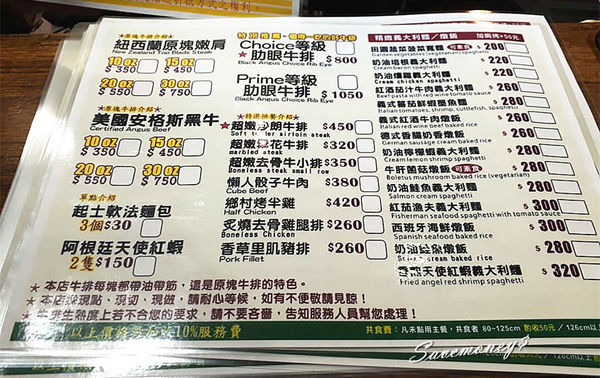 ★原塊牛排介紹★
紐西蘭原塊嫩肩
New Zealand Top Blads Steak
10 oz
$ 350
15 oz
$ 450
20 oz
30 oz
$ 750
★原塊牛排介紹★
美國安格斯黑牛
Certified Angus Beef
10 oz
15 oz
$ 450
20 oz
$ 550
30 oz
$ 750
單點介紹
起士軟法麵包
3個 $30
阿根廷天使紅蝦
2隻 $150
Choice等級
肋眼牛排
$ 800
Black Angus Choice Rib Eye
Prime等級
肋眼牛排
$ 1050
Black Angus Choice Rib Eye
★特選排餐介紹★
$450
$320
marbled steak
超嫩去骨牛小排 $350
Boneless steak small row
懶人骰子牛肉 $380
Cube Beef
鄉村烤半雞 $420
Half Chicken
炙燒去骨雞腿排 $260
Boneless Chicken
香草里肌豬排 $260
Pork Fillet
精緻義大利麵/燉飯
加焗烤+50元
田園蔬菜菠菜寬麵 可素食 $ 200
奶油培根義大利麵 $ 220
Cream bacon spaghetti
奶油燻雞義大利麵 $ 220
Cream chicken spaghetti
紅酒茄汁牛肉義大利麵 $ 260
Beef pasta with red wine tomato sauce
義式蕃茄鮮蝦墨魚麵 $ 280
Italian tomatoes, shrimp, cuttlefish, spaghetti
義式紅酒牛肉燉飯 $ 260
Italian red wine beef baked rice
德式香腸奶香燉飯 $ 260
German sausage cream baked rice
奶油檸檬蝦義大利麵 $ 260
Cream lemon shrimp spaghetti
牛肝菌菇燉飯 可素食 $ 280
Boletus mushroom baked rice (vegetarian)
奶油鮭魚義大利麵 $ 280
Cream salmon spaghetti
紅茄漁夫義大利麵 $ 300
Fisherman seafood spaghetti with tomato sauce
西班牙海鮮燉飯 $ 300
Spanish seafood baked rice
$ 280
Spanish seafood baked rice
天使紅蝦義大利麵 $ 320
Fried angel red shrimp spaghetti
★本店牛排每塊都帶油帶筋，這是原塊牛排的特色。
★本店採現點、現切、現做，請耐心等候，如有不便敬請見諒！
★牛排生熟度上若不合您的要求，請不要吝嗇，告知服務人員幫您處理！
以上價格另加收10%服務費
共食費：凡未點用主餐，共食者 80-125cm 酌收50元 / 126cm以上
Savemoney$